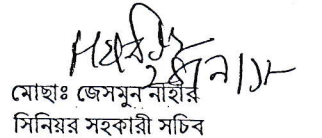 মোছাঃ জেসমুন নাহার
সিনিয়র সহকারী সচিব